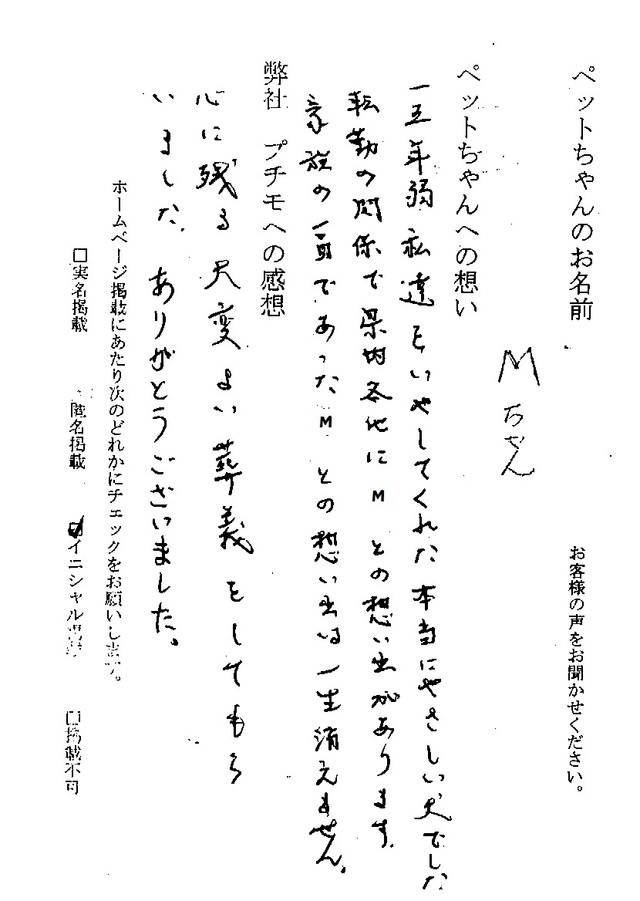 お客様の声をお聞かせください。
ペットちゃんのお名前
Mちゃん
ペットちゃんへの想い
一五年弱私達をいやしてくれた本当にやさしい犬でした
転勤の関係で県内各地にMとの想い出があります。
家族の一員であったMとの想い出は一生消えません。
弊社 プチモへの感想
心に残る大変よい葬義をしてもら
いました。ありがとうございました。
ホームページ掲載にあたり次のどれかにチェックをお願いします。
□実名掲載 匿名掲載 ☑イニシャル掲載 □掲載不可